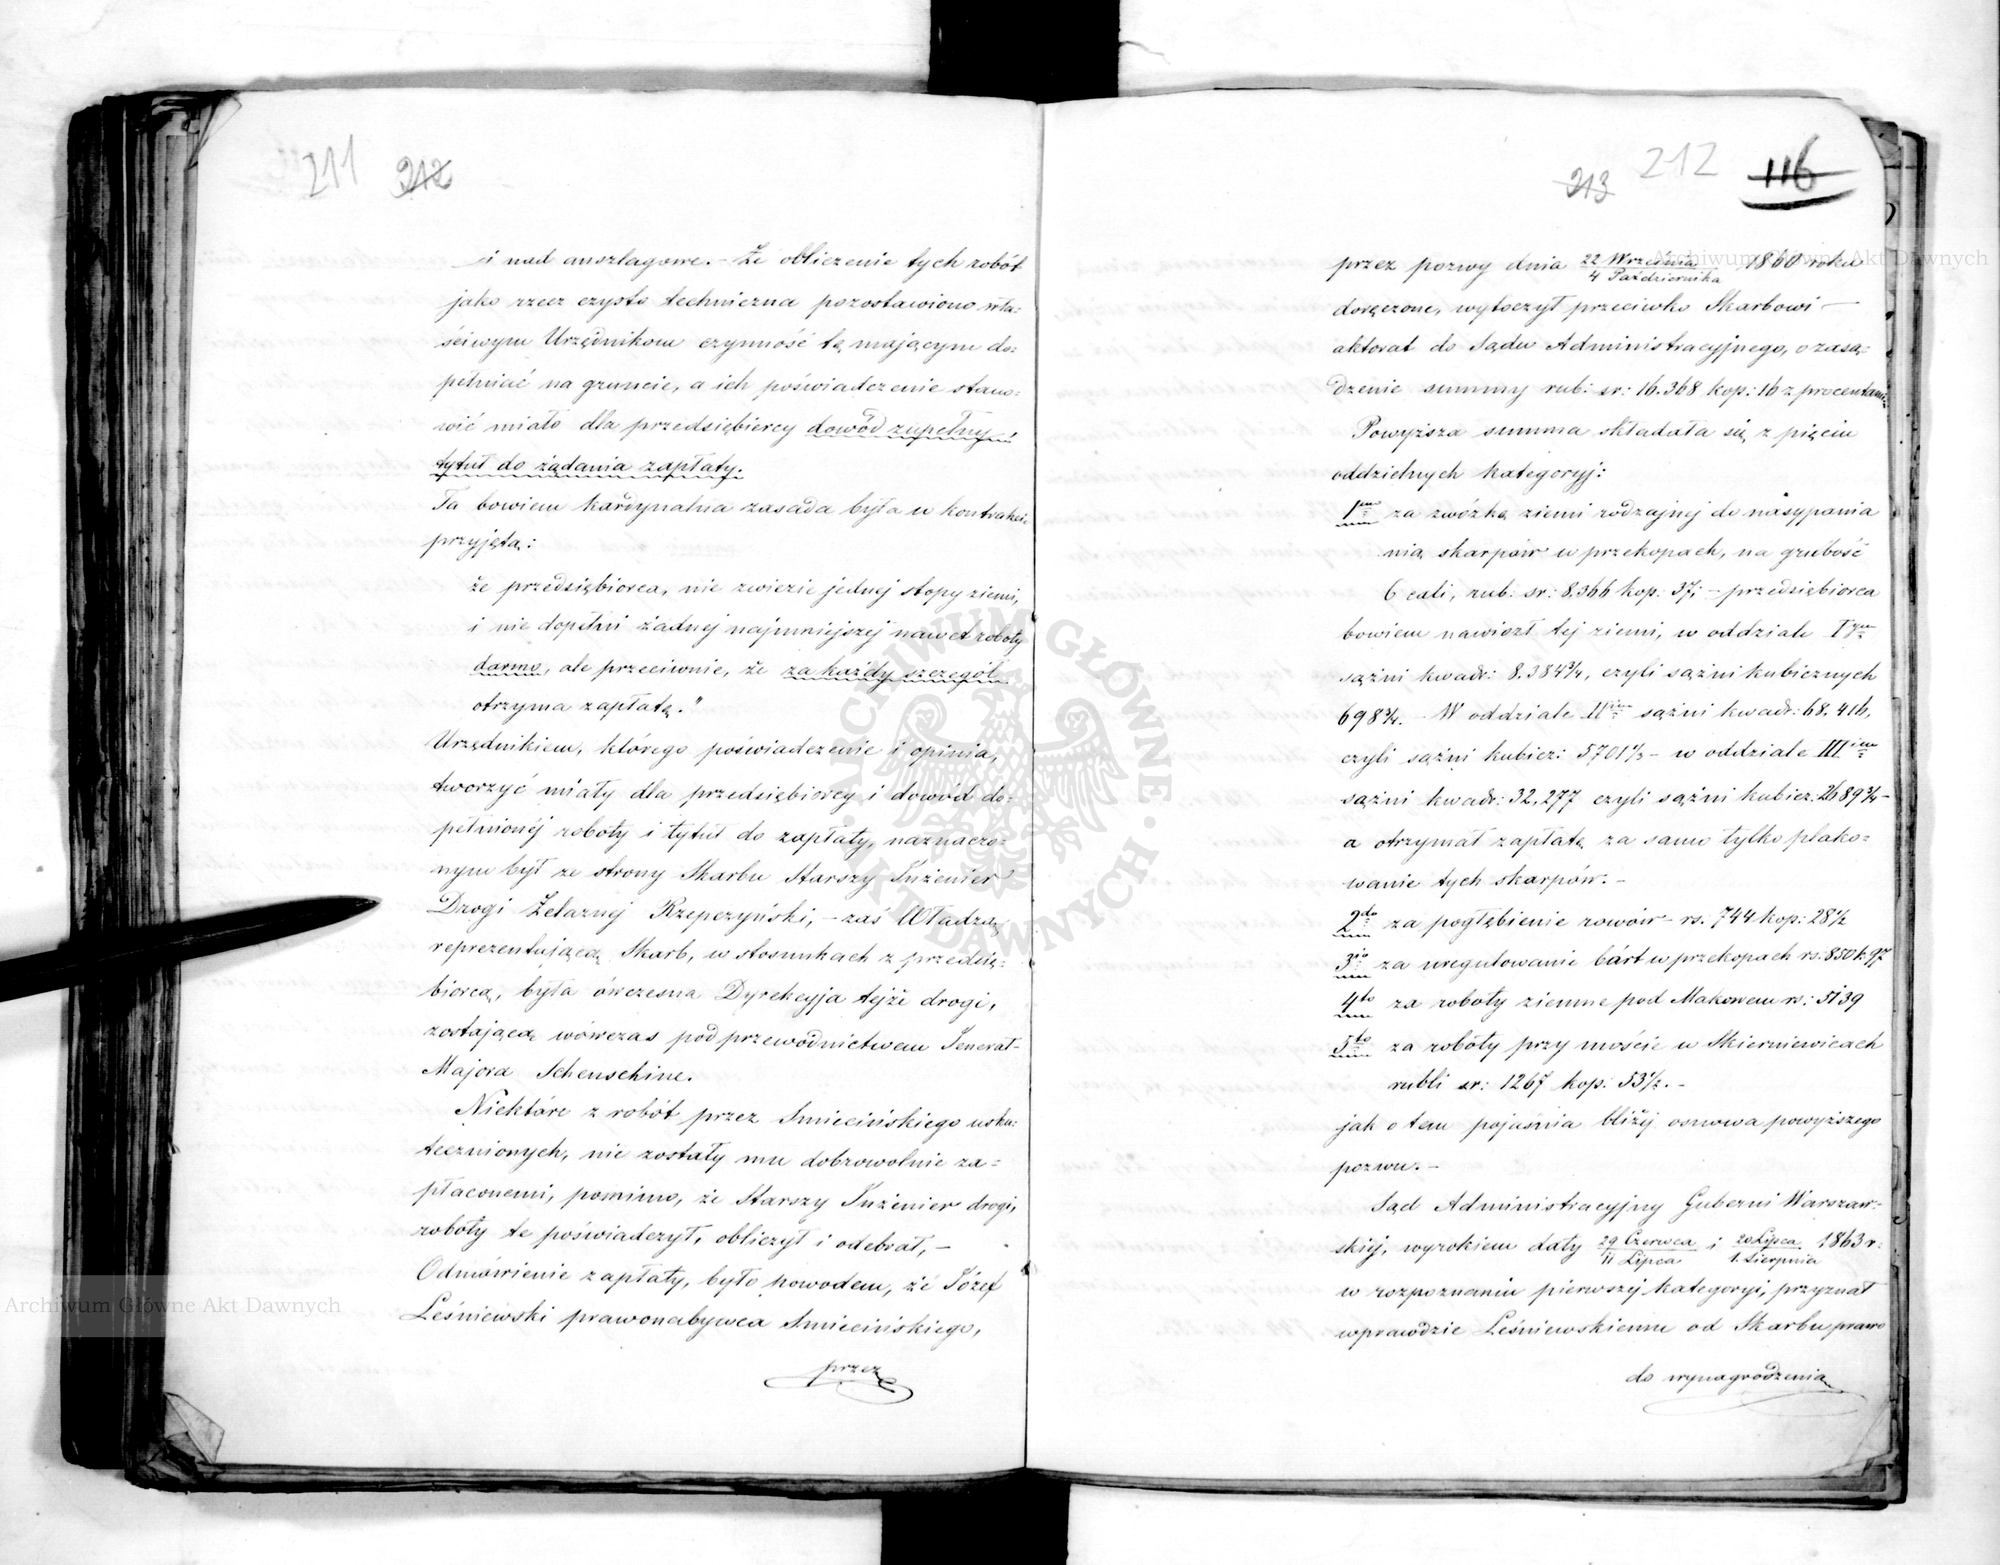 211 212
i nad anszlagowe. – Że obliczenie tych robót
jako rzecz czysto techniczna pozostawiono wła:
ściwym Urzędnikom czynność tę mającym do:
pełniać na gruncie, a ich poświadczenie stano:
wić miało dla przedsiębiercy dowód zupełny i
tytuł do żądania zapłaty.
Ta bowiem kardynalna zasada była w kontrakcie
przyjętą:
że przedsiębiorca, nie zwiezie jednej stopy ziemi,
i nie dopełni żadnej najmniejszej nawet roboty
darmo, ale przeciwnie, że za każdy szczegół
otrzyma zapłatę."
Urzędnikiem, którego poświadczenie i opinia,
tworzyć miały dla przedsiębiorcy i dowód do:
pełnionéj roboty i tytuł do zapłaty, naznaczo:
nym był ze strony Skarbu Starszy Inżenier
Drogi Żelaznej Rzepczyński, – zaś Władzą
reprezentującą Skarb, w stosunkach z przedsię:
biorcą, była ówczesna Dyrekcyja tejże drogi,
zostającą wówczas pod przewodnictwem Jenerał-
Majora Schenschine.
Niektóre z robót przez Smiecińskiego usku:
tecznionych, nie zostały mu dobrowolnie za=
płaconemi, pomimo, że Starszy Inżenier drogi,
roboty te poświadczył, obliczył i odebrał, –
Odmówienie zapłaty, było powodem, że Józef
Leśniewski prawonabywca Smiecińskiego,
przez
213 212 116
przez pozwy dnia 22 Września / 4 Października 1860 roku
doręczone, wytoczył przeciwko Skarbowi –
aktorat do Sądu Administracyjnego, o zasą:
dzenie summy rub: sr: 16.368 kop: 16 z procentami
Powyższa summa składała się z pięciu
oddzielnych kategoryj:
1mo za zwózkę ziemi rodzajnej do násypania
nią skarpów w przekopach, na grubość
6 cali, rub: sr: 8.366 kop: 37; – przedsiębiorca
bowiem nawiozł tej ziemi, w oddziale Iym
sążni kwadr: 8.384¾, czyli sążni kubicznych
698¾. – W oddziale IIim sążni kwadr: 68.416,
czyli sążni kubicz: 5701⅓ – w oddziale IIIim
sążni kwadr: 32,277 czyli sążni kubicz. 2689¾ –
a otrzymał zapłatę za samo tylko plako=
wanie tych skarpów. –
2do za pogłębienie rowów – rs. 744 kop: 28½
3io za uregulowanie bárt w przekopach rs. 850 k. 97
4to za roboty ziemne pod Makowem rs: 5139
5to za roboty przy moście w Skierniewicach
rubli sr: 1267 kop: 53½. –
jak o tem pojaśnia bliżéj osnowa powyższego
pozwu. –
Sąd Administracyjny Guberni Warszaw:
skiej, wyrokiem daty 29 Czerwca / 11 Lipca i 20 Lipca / 1. Sierpnia 1863 r:
w rozpoznaniu pierwszej kategoryi, przyznał
wprawdzie Leśniewskiemu od Skarbu prawo
do wynagrodzenia
ARCHIWUM GŁÓWNE AKT DAWNYCH
Archiwum Główne Akt Dawnych
Archiwum Główne Akt Dawnych